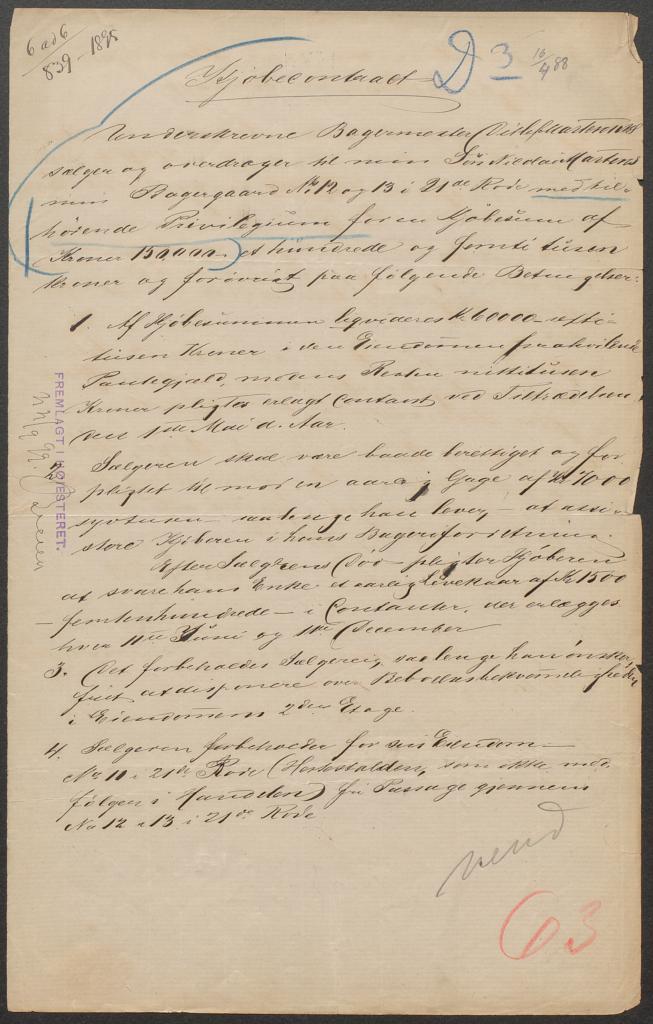 6 ad 6
839 - 1895
D 3 16/4 88
Kjøbecontract
Underskrevne Bagermester Ditlef Martens
sælger og overdrager til min Søn Nicolai Martens
min Bagergaard No 12 og 13 i 21de Rode med til-
hørende Privilegium for en Kjøbesum af
Kroner 150000 et hundrede og femti tusen
Kroner og forøvrigt paa følgende Betingelser:
1. Af Kjøbesummen liqvideres Kr. 60000
tusen Kroner i den Eiendommen paahvilende
Pantegjæld, medens Resten nittitusen
Kroner pligtes erlagt contant ved Tiltrædelsen
den 1ste Mai d. Aar.
2. Sælgeren skal være baade berettiget og for-
pligtet til mod en aarlig Gage af Kr 4000
saalenge han lever, at assi-
stere Kjøberen i hans Bageriforretning.
Efter Sælgerens Død pligter Kjøberen
at svare hans Enke et aarlig Livekaar af Kr 1500
- femtenhundrede - i Contanter, der erlægges
hver 11te Juni og 11te December
3. Det forbeholdes Sælgeren, saalenge han ønsker,
frit at disponere over Beboelsesbekvemmelighederne
i Eiendommens 2den Etage.
4. Sælgeren forbeholder for sin Eiendom
No 11 i 21de Rode (Hestestalden, som ikke med-
følger i Handelen) fri Passage gjennem
No 12 & 13 i 21de Rode
FREMLAGT I HØIESTERET.
vend
63